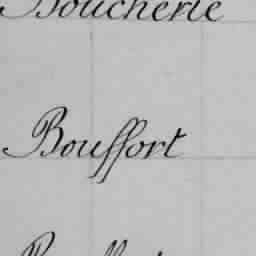 Boucherie
Bouffort